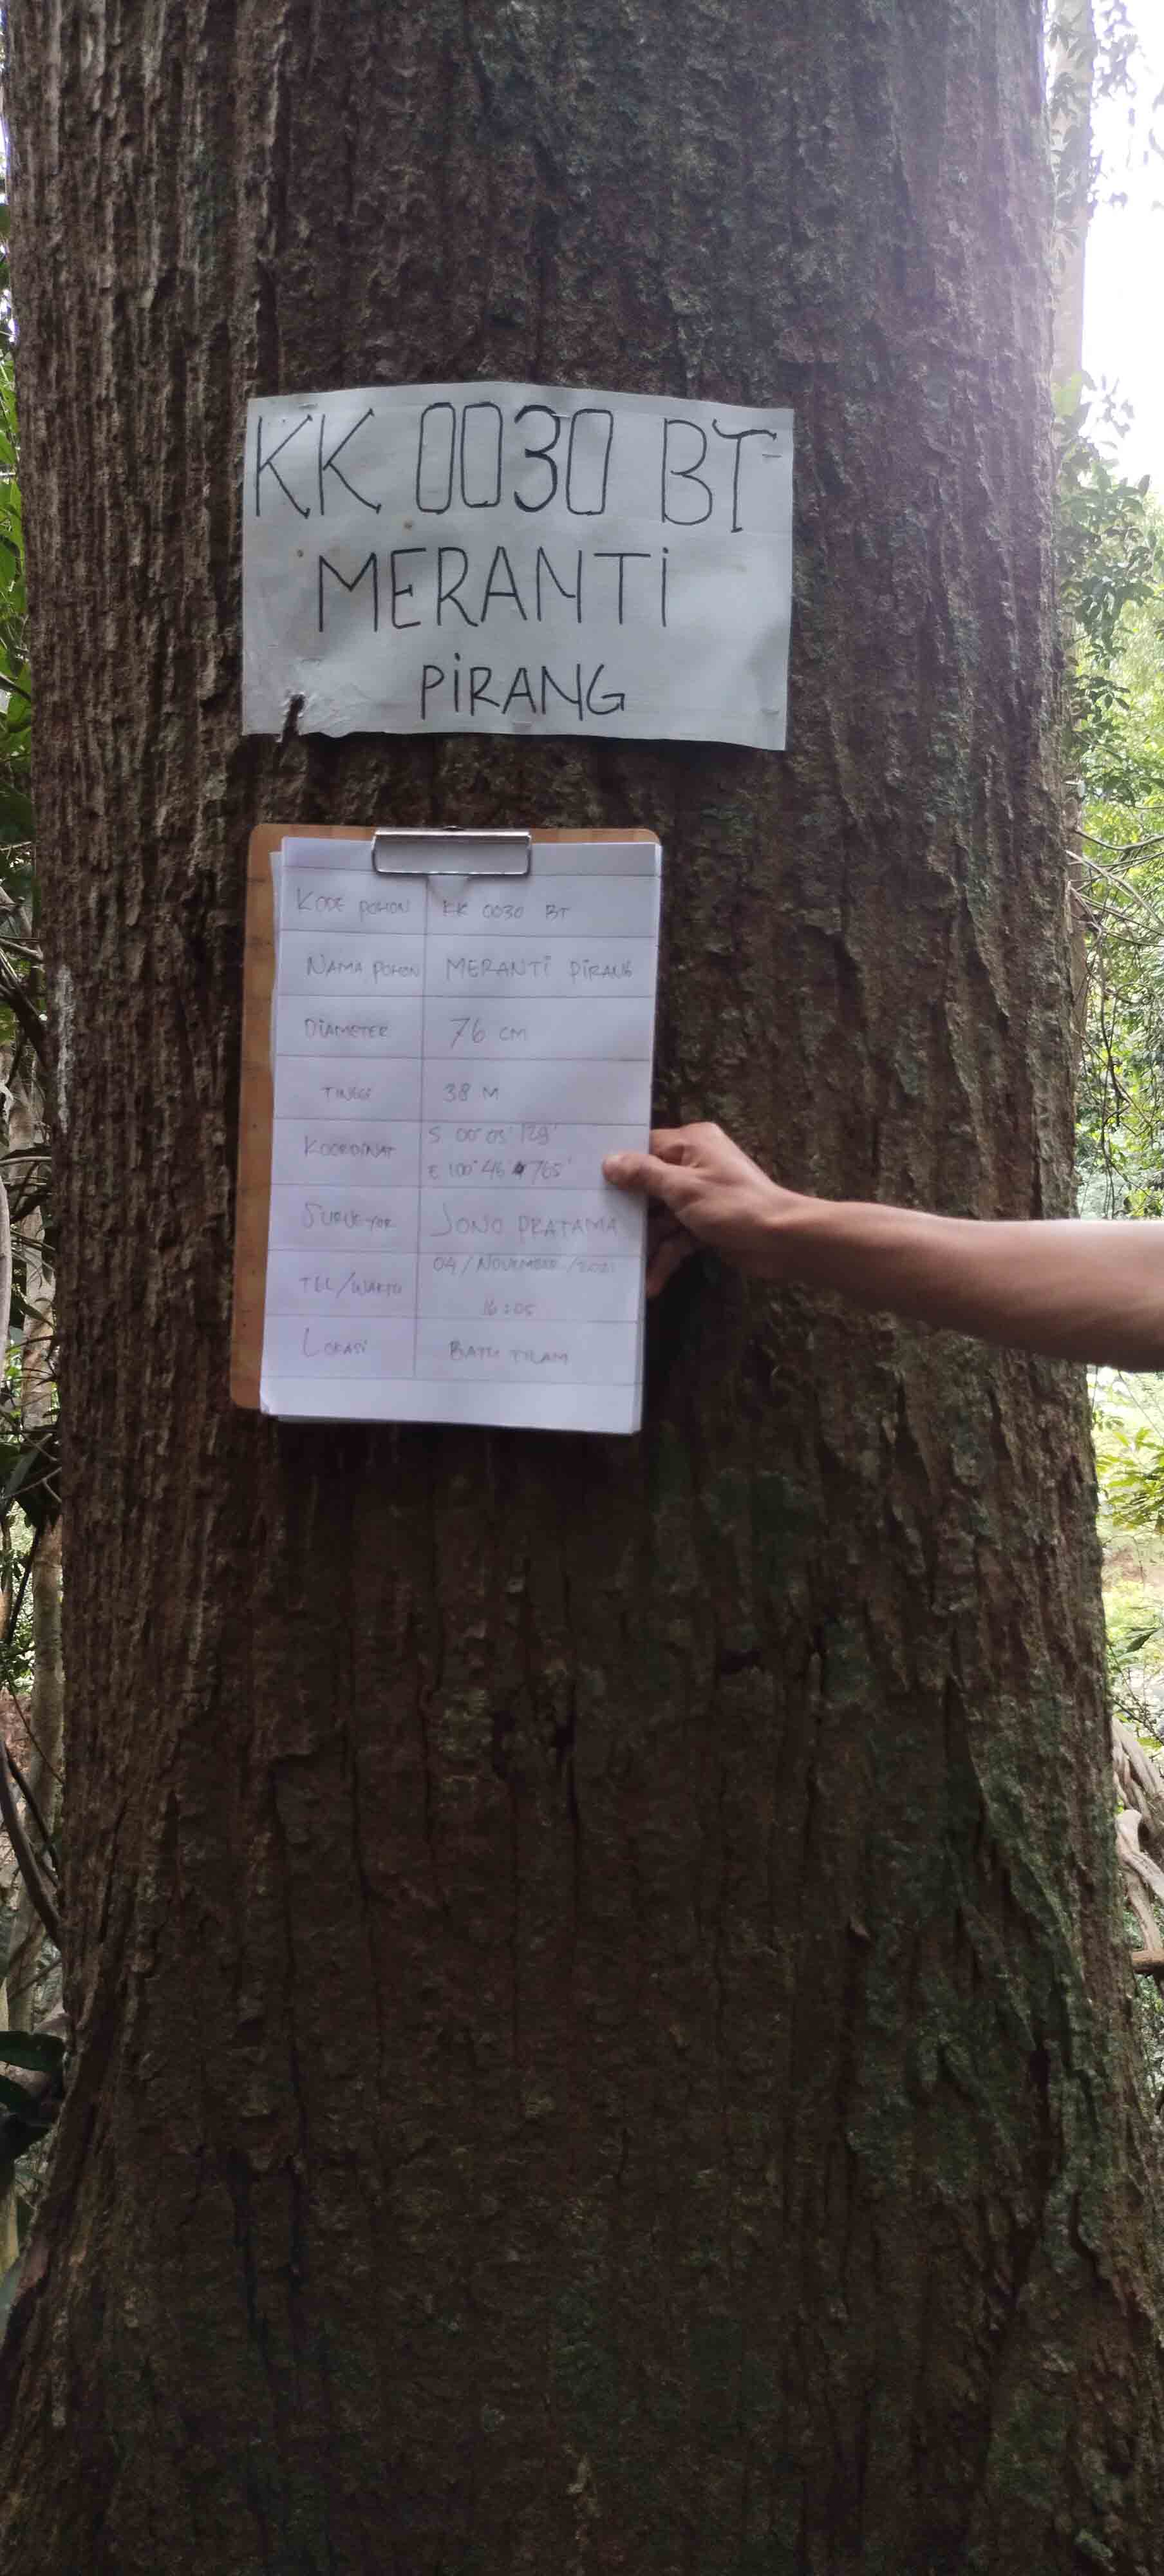 KK 0030 BT
MERANTi
PiRANG
KODE POHON KK 0030 BT
NAMA POHON MERANTi PiRANG
DiAMETER 76 CM
TINGGI 38 M
KOORDINAT S 00° 03' 129'
E 100° 46' 765'
SURVEYOR JONO PRATAMA
TGL/WAKTU 04/NOVEMBER/2021
16:05
LOKASi BATU TILAM